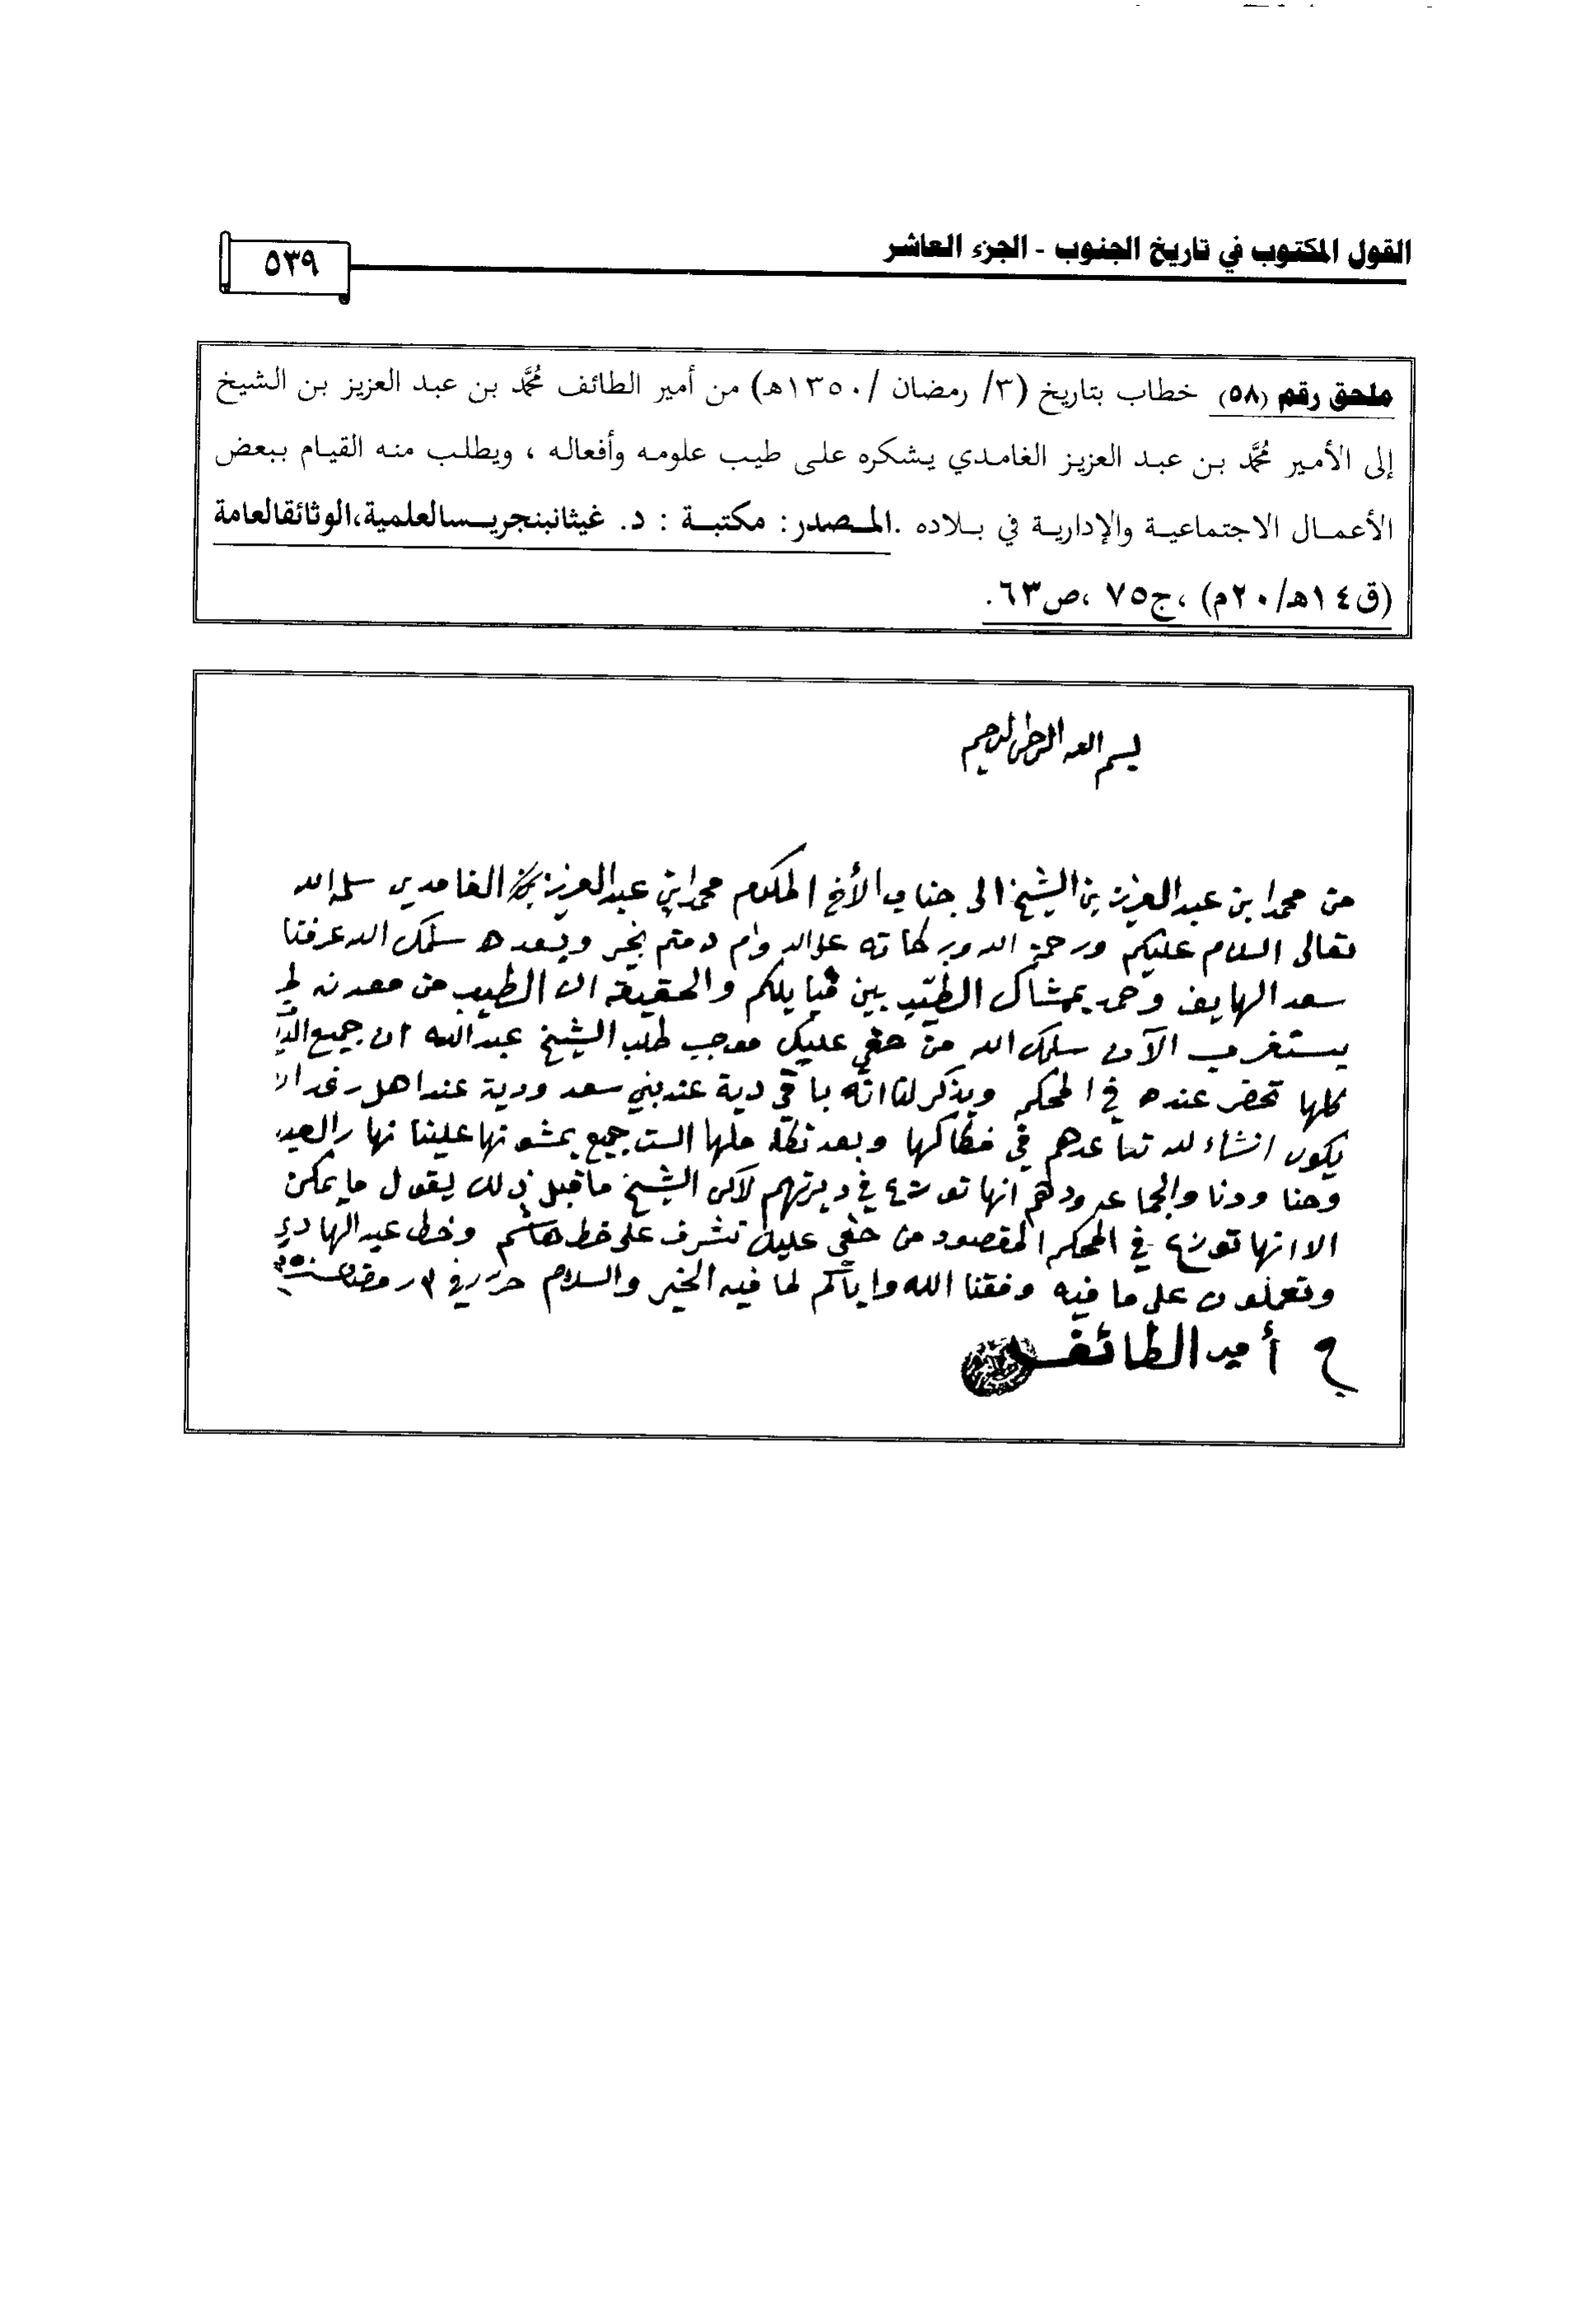 القول المكتوب في تاريخ الجنوب - الجزء العاشر
٥٣٩
ملحق رقم (٥٨) خطاب بتاريخ (٣/ رمضان /١٣٥٠هـ) من أمير الطائف محمَّد بن عبد العزيز بن الشيخ
إلى الأمير محمَّد بن عبد العزيز الغامدي يشكره على طيب علومه وأفعاله ، ويطلب منه القيام ببعض
الأعمال الاجتماعية والإدارية في بلاده .المصدر: مكتبة : د. غيثانبنجريسالعلمية،الوثائقالعامة
(ق١٤هـ/٢٠م) ،ج٧٥ ،ص٦٣.
بسم الله الرحمن الرحيم
من محمد ابن عبد العزيز بن الشيخ الى جناب الأخ المكرم محمد ابن عبد العزيز الغامدي سلمه الله
تعالى السلام عليكم ورحمة الله وبركاته على الدوام دمتم بخير وبعده سلمك الله عرفنا
سعد الهايف وحمد بمشاك الطيب بين قبايلكم والحقيقة ان الطيب من معدنه لم
يستغرب الآن سلمك الله من حقي عليك موجب طلب الشيخ عبد الله ان جميع
كلها تحضر عنده في المحكم ويذكر لنا انه باقي دية عند بني سعد ودية عند اهل رغدان
يكون انشاء لله في فكاكها وبعد الست جميع يمشونها علينا نهار العيد
وحنا ودنا والجماعه ودهم انها توزع في ديرتهم لاكن الشيخ ما قبل ذلك يقول ما يمكن
الا انها توزع في المحكم المقصود من حقي عليك تشرف على خط هاشم وخط عبد الهادي
وتعملون على ما فيه وفقنا الله واياكم لما فيه الخير والسلام حرر في ٣ رمضان سنة ١٣٥٠
أمير الطائف